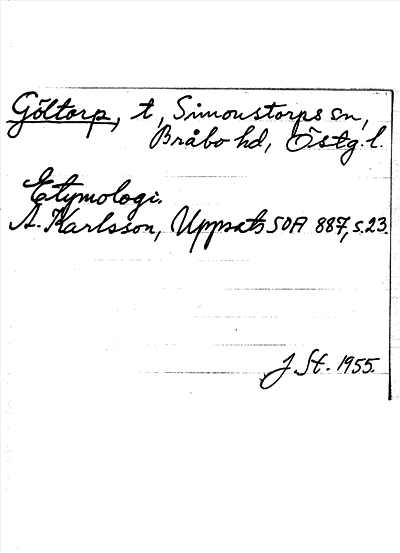 Göltorp, t, Simonstorps sn,
Bråbo hd, Östg. l.
Etymologi.
A. Karlsson, Uppsats SOA 887, s. 23.
J. St. 1955.